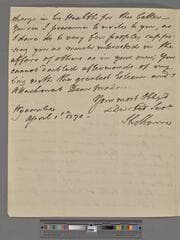 change in his Health for the better.
You see I presume to write to you, as
I have do to very few people, supposing
you as much interested in the
affairs of others as in your own; You
cannot doubt of afterwards of my
being with the greatest Esteem and
Attachment Dear Madm
Your most Obliged
& Devoted Servt
Wycombe
April 1st 1770
Shelburne